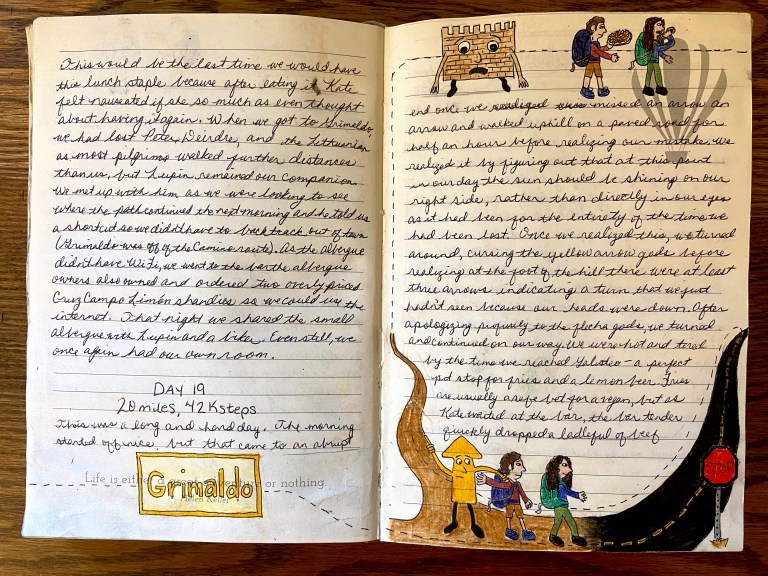 This would be the last time we would have
this lunch staple because after eating it Kate
felt nauseated if she so much as even thought
about having it again. When we got to Grimaldo,
we had lost Peter, Deirdre, and the Lithuanian
as most pilgrims walked further distances
than us, but Lupin remained our companion.
We met up with him as we were looking to see
where the path continued the next morning and he told us
a shortcut so we didn't have to backtrack out of town
(Grimaldo was off of the Camino route). As the albergue
didn't have WiFi, we went to the bar the albergue
owners also owned and ordered two overly priced
Cruz Campo Limón shandies so we could use the
internet. That night we shared the small
albergue with Lupin and a biker. Even still, we
once again had our own room.
DAY 19
20 miles, 42K steps
This was a long and hard day. The morning
started off nice, but that came to an abrupt
Life is either a great adventure or nothing.
Helen Keller
Grinaldo
end once we missed an arrow an
arrow and walked uphill on a paved road for
half an hour before realizing our mistake. We
realized it by figuring out that at this point
in our day the sun should be shining on our
right side, rather than directly in our eyes
as it had been for the entirety of the time we
had been lost. Once we realized this, we turned
around, cursing the yellow arrow gods before
realizing at the foot of the hill there were at least
three arrows indicating a turn that we just
hadn't seen because our heads were down. After
apologizing to the flecha gods, we turned
and continued on our way. We were hot and tired
by the time we reached Galisteo - a perfect
pit stop for fries and a lemon beer. Fries
are usually a safe bet for a vegan, but as
Kate waited at the bar, the bar tender
quickly dropped a ladleful of beef
STOP